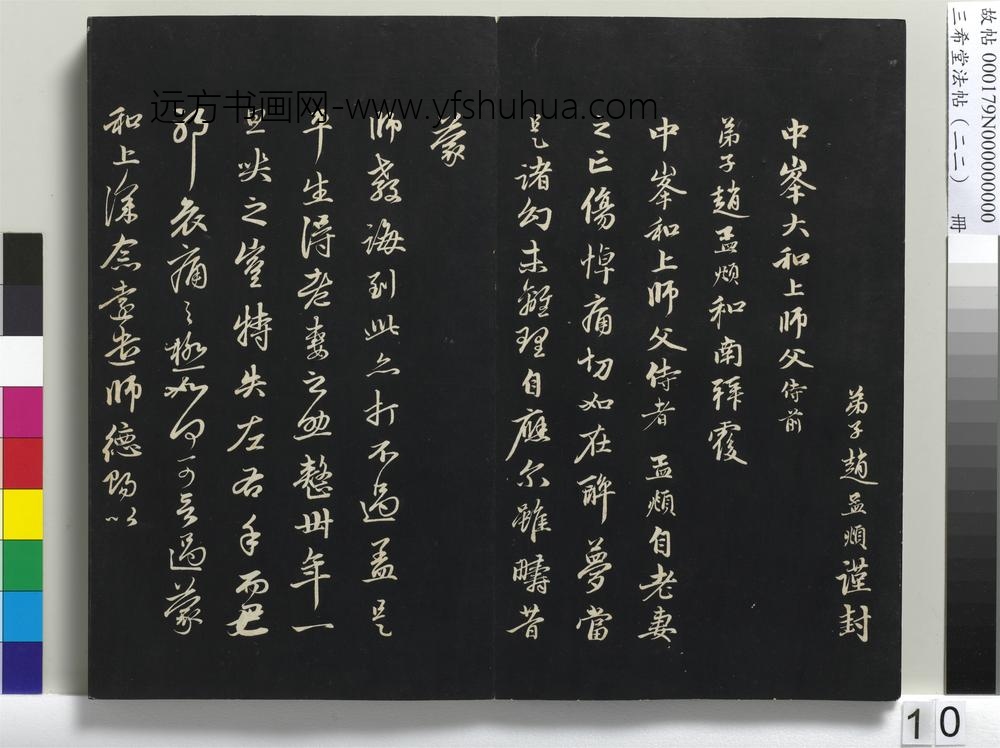 故帖 000179N000000000
三希堂法帖（二二） 冊
远方书画网-www.yfshuhua.com
弟子趙孟頫謹封
中峯大和上師父侍前
弟子趙孟頫和南拜覆
中峯和上師父侍者 孟頫自老妻
之亡傷悼痛切如在醉夢當
是諸幻未離理自應尔雖疇昔
蒙
師教誨到此亦打不過蓋是
平生得老妻之助整卅年一
旦哭之豈特失左右手而已
耶哀痛之極如何可言過蒙
和上深念遠遣師德賜以
10